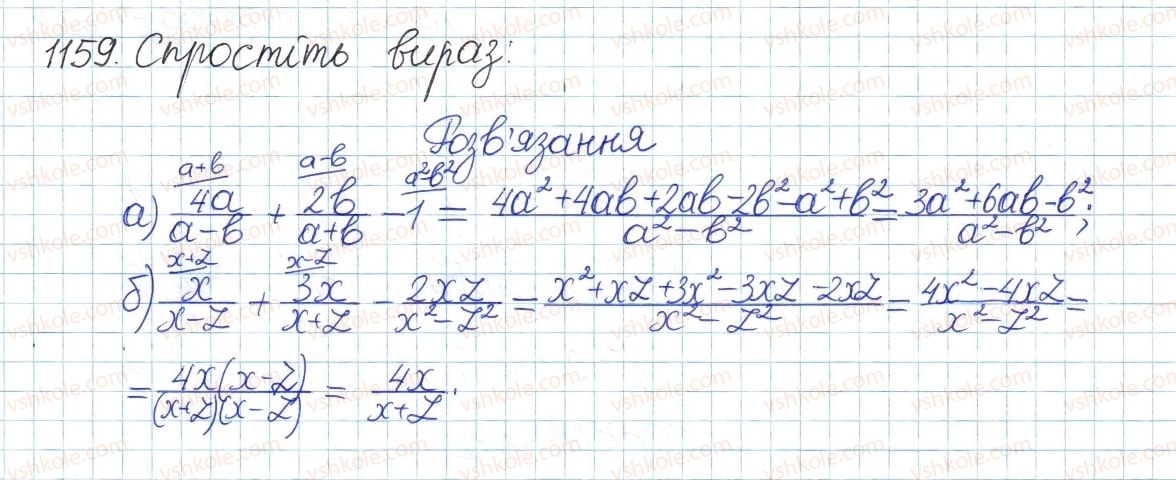 1159. Спростіть вираз:
Розв'язання
а) 4a/(a-b) [a+b] + 2b/(a+b) [a-b] - 1 [a²-b²] = (4a²+4ab+2ab-2b²-a²+b²)/(a²-b²) = (3a²+6ab-b²)/(a²-b²);
б) x/(x-z) [x+z] + 3x/(x+z) [x-z] - 2xz/(x²-z²) = (x²+xz+3x²-3xz-2xz)/(x²-z²) = (4x²-4xz)/(x²-z²) =
= 4x(x-z)/((x+z)(x-z)) = 4x/(x+z).
vshkole.com